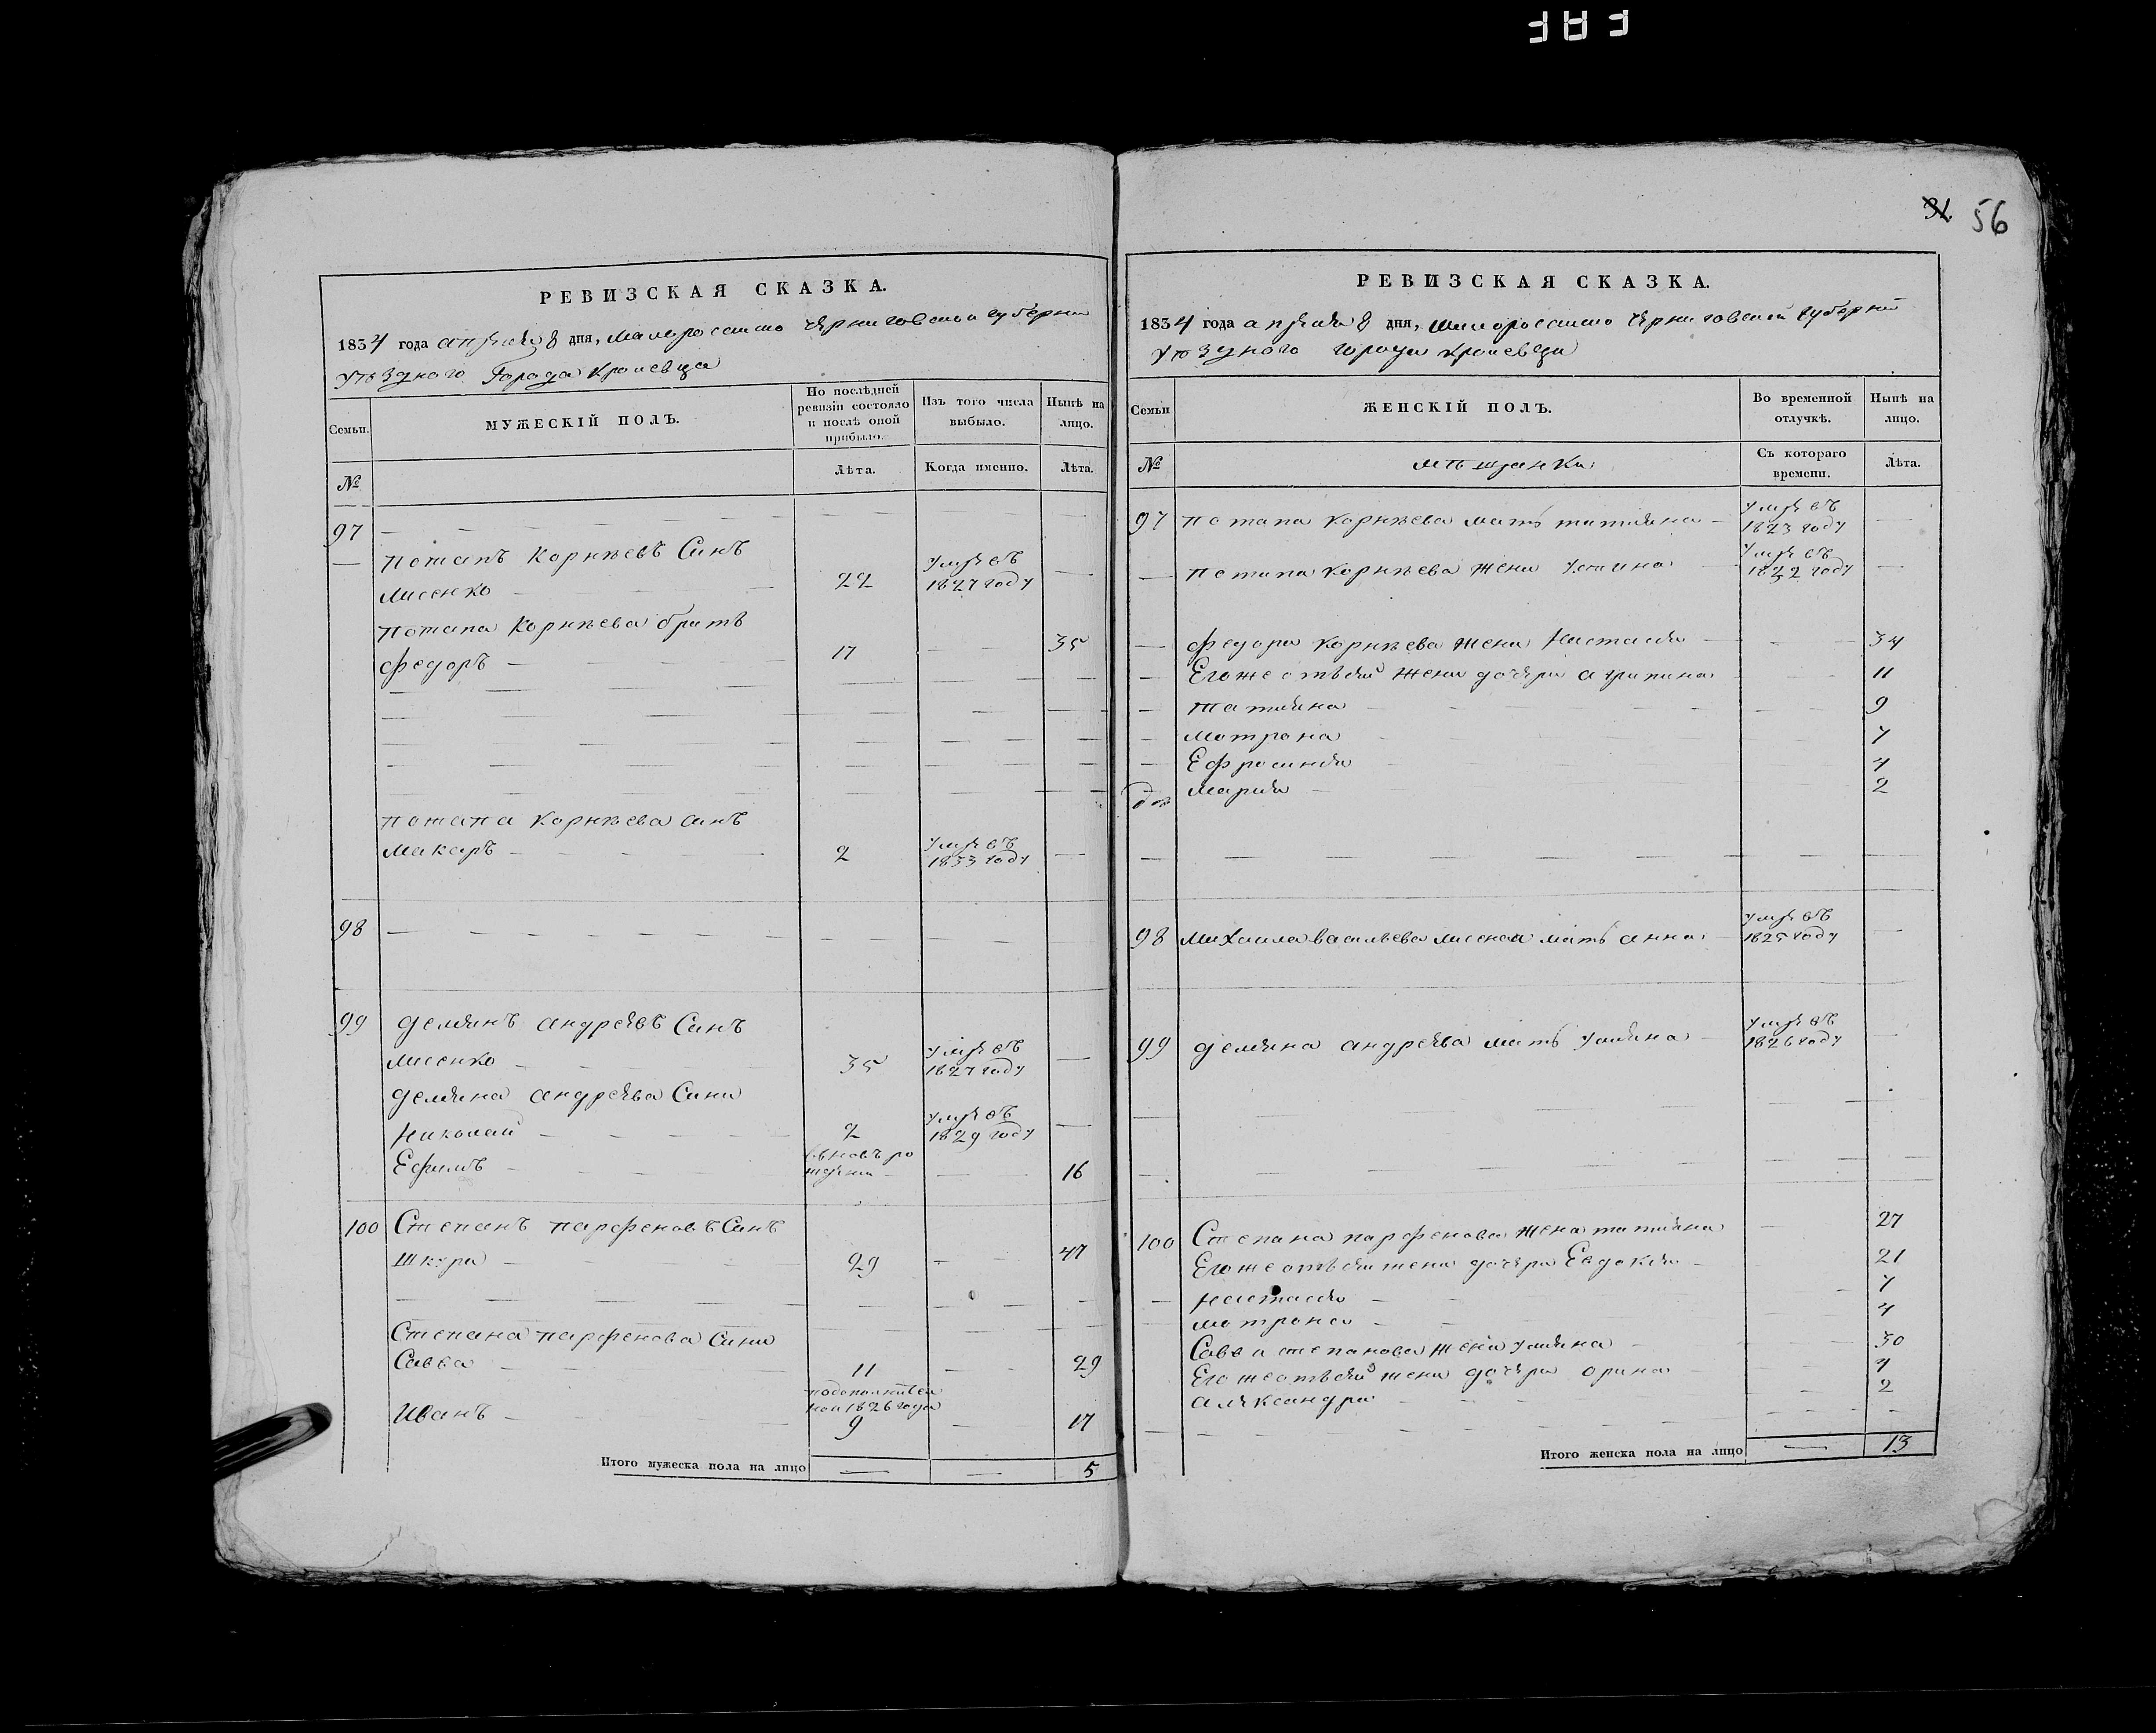 31. 56
РЕВИЗСКАЯ СКАЗКА.
1834 года апреля 8 дня, малороссиско Черниговской губернии
уѣзднаго Города Кролевца
Семьи.
МУЖЕСКІЙ ПОЛЪ.
По послѣдней ревизіи состояло и послѣ оной прибыло.
Изъ того числа выбыло.
Нынѣ на лицо.
№
Лѣта.
Когда именно.
Лѣта.
97
потапъ Корнѣевъ Синъ
Лисенко 22 умре въ 1827 году
потапа Корнѣева братъ
федоръ 17 35
потапа Корнѣева синъ
макаръ 2 умре въ 1833 году
98
99 демянъ андреевъ Синъ
Лисенко 35 умре въ 1827 году
демяна андреева Сини
Николай 2 умре въ 1829 году
Ефимъ вновь рожденн 16
100 Степанъ парфеновъ Синъ
Шкура 29 47
Степана парфенова Сини
Савва 11 29
Иванъ 1826 года 9 17
Итого мужеска пола на лицо 5
РЕВИЗСКАЯ СКАЗКА.
1834 года апреля 8 дня, малороссиско Черниговской губернии
уѣзднаго города Кролевца
Семьи
ЖЕНСКІЙ ПОЛЪ.
Во временной отлучкѣ.
Нынѣ на лицо.
№
мѣщанки
Съ котораго времени.
Лѣта.
97 потапа Корнѣева мать татияна умре въ 1823 году
потапа Корнѣева жена устина умре въ 1832 году
федора Корнѣева жена Настасия 34
Его же отъ сей жени дочери агрипина 11
татияна 9
мотрона 7
Ефросиния 4
мария 2
98 михаила васильева лисенка мать анна умре въ 1825 году
99 демяна андреева мать улияна умре въ 1826 году
100 Степана парфенова жена татияна 27
Его же отъ сей жени дочери Евдокия 21
настасия 7
мотрона 4
Сави степанова жена улияна 30
Его же отъ сей жени дочери орина 4
александра 2
Итого женска пола на лицо 13